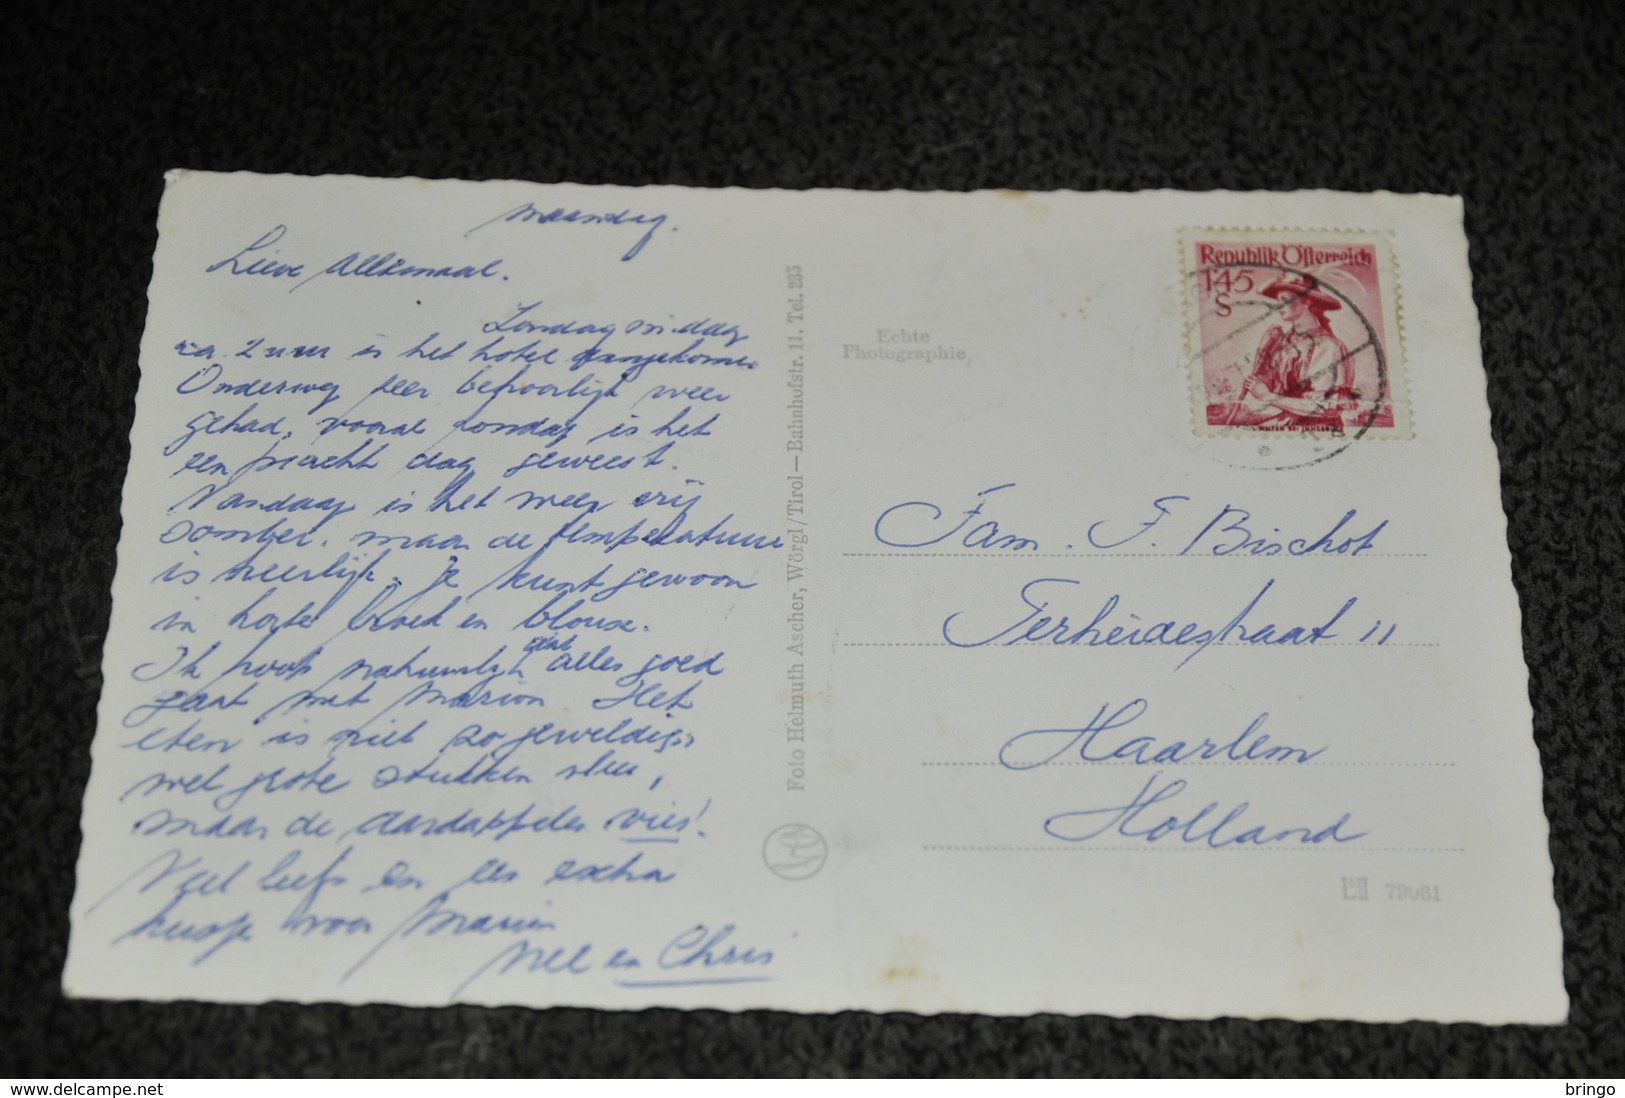 maandag.
Lieve Allemaal.
Zondag middag
ca. 2 uur is het hotel aangekomen
Onderweg zeer behoorlijk weer
gehad, vooral zondag is het
een pracht dag geweest.
Vandaag is het weer vrij
somber, maar de temperatuur
is heerlijk. Je kunt gewoon
in korte broek en blouse.
Ik hoop natuurlijk dat alles goed
gaat met Marion Het
eten is niet zo geweldig,
wel grote stukken vlees,
maar de aardappelen vies!
Veel liefs en een extra
kusje voor Marion
Nel en Chris
Foto Helmuth Ascher, Wörgl/Tirol – Bahnhofstr. 11. Tel. 235
Echte
Photographie
Republik Österreich
1'45
S
Fam. F. Bischot
Terheidestraat 11
Haarlem
Holland
79061
delcampe.net
bringo